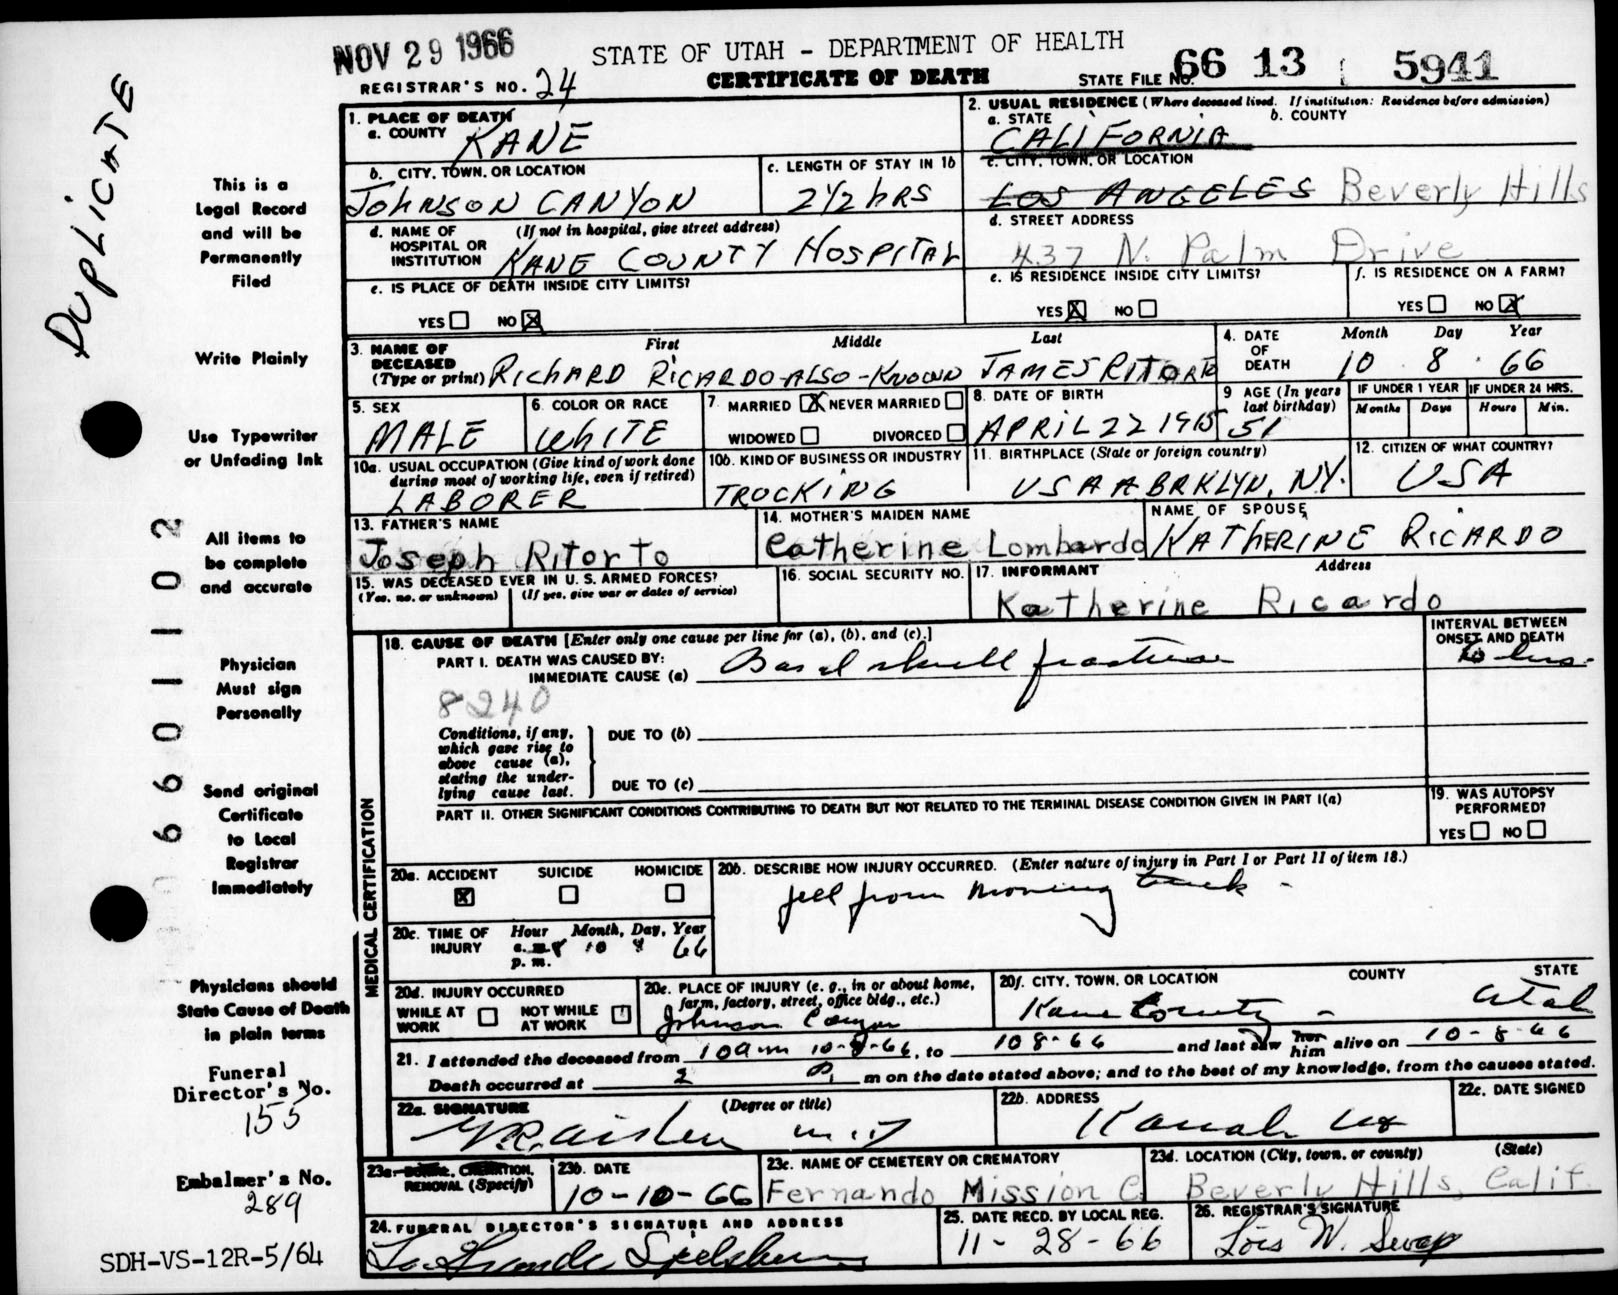 NOV 29 1966
STATE OF UTAH - DEPARTMENT OF HEALTH
CERTIFICATE OF DEATH
REGISTRAR'S NO. 24
STATE FILE NO. 66 13 5941
DUPLICATE
This is a
Legal Record
and will be
Permanently
Filed
Write Plainly
Use Typewriter
or Unfading Ink
All items to
be complete
and accurate
Physician
Must sign
Personally
Send original
Certificate
to Local
Registrar
Immediately
Physicians should
State Cause of Death
in plain terms
Funeral
Director's No.
155
Embalmer's No.
289
SDH-VS-12R-5/64
6601102
1. PLACE OF DEATH
a. COUNTY KANE
b. CITY, TOWN, OR LOCATION
JOHNSON CANYON
c. LENGTH OF STAY IN 1b
2 1/2 hRS
d. NAME OF (If not in hospital, give street address)
HOSPITAL OR
INSTITUTION KANE COUNTY HOSPITAL
e. IS PLACE OF DEATH INSIDE CITY LIMITS?
YES NO X
2. USUAL RESIDENCE (Where deceased lived. If institution: Residence before admission)
a. STATE b. COUNTY
CALIFORNIA
c. CITY, TOWN, OR LOCATION
LOS ANGELES Beverly Hills
d. STREET ADDRESS
437 N. Palm Drive
e. IS RESIDENCE INSIDE CITY LIMITS?
YES X NO
f. IS RESIDENCE ON A FARM?
YES NO X
3. NAME OF DECEASED (Type or print) First Middle Last
RICHARD RICARDO-ALSO-KNOWN JAMES RITORTO
4. DATE OF DEATH Month Day Year
10 8 66
5. SEX
MALE
6. COLOR OR RACE
WHITE
7. MARRIED X NEVER MARRIED
WIDOWED DIVORCED
8. DATE OF BIRTH
APRIL 22 1915
9 AGE (In years last birthday)
51
IF UNDER 1 YEAR IF UNDER 24 HRS.
Months Days Hours Min.
10a. USUAL OCCUPATION (Give kind of work done
during most of working life, even if retired)
LABORER
10b. KIND OF BUSINESS OR INDUSTRY
TRUCKING
11. BIRTHPLACE (State or foreign country)
USA A BRKLYN, NY.
12. CITIZEN OF WHAT COUNTRY?
USA
13. FATHER'S NAME
Joseph Ritorto
14. MOTHER'S MAIDEN NAME
Catherine Lombardo
NAME OF SPOUSE
KATHERINE RICARDO
15. WAS DECEASED EVER IN U. S. ARMED FORCES?
(Yes, no, or unknown) (If yes, give war or dates of service)
16. SOCIAL SECURITY NO.
17. INFORMANT Address
Katherine Ricardo
MEDICAL CERTIFICATION
18. CAUSE OF DEATH [Enter only one cause per line for (a), (b), and (c).]
PART I. DEATH WAS CAUSED BY:
IMMEDIATE CAUSE (a) Basal skull fracture
INTERVAL BETWEEN
ONSET AND DEATH
hrs.
8240
Conditions, if any,
which gave rise to
above cause (a),
stating the under-
lying cause last.
DUE TO (b)
DUE TO (c)
PART II. OTHER SIGNIFICANT CONDITIONS CONTRIBUTING TO DEATH BUT NOT RELATED TO THE TERMINAL DISEASE CONDITION GIVEN IN PART I(a)
19. WAS AUTOPSY
PERFORMED?
YES NO
20a. ACCIDENT SUICIDE HOMICIDE
X
20b. DESCRIBE HOW INJURY OCCURRED. (Enter nature of injury in Part I or Part II of item 18.)
fell from moving truck -
20c. TIME OF INJURY Hour Month, Day, Year
a.m. 10 8 66
p. m.
20d. INJURY OCCURRED
WHILE AT WORK NOT WHILE AT WORK
20e. PLACE OF INJURY (e. g., in or about home,
farm, factory, street, office bldg., etc.)
Johnson Canyon
20f. CITY, TOWN, OR LOCATION COUNTY STATE
Kane County - Utah
21. I attended the deceased from 10am 10-8-66, to 10 8-66 and last saw her him alive on 10-8-66
Death occurred at 2 P. m on the date stated above; and to the best of my knowledge, from the causes stated.
22a. SIGNATURE (Degree or title)
Aiken M.D
22b. ADDRESS
Kanab
22c. DATE SIGNED
23a. BURIAL, CREMATION,
REMOVAL (Specify)
23b. DATE
10-10-66
23c. NAME OF CEMETERY OR CREMATORY
Fernando Mission C.
23d. LOCATION (City, town, or county) (State)
Beverly Hills, Calif.
24. FUNERAL DIRECTOR'S SIGNATURE AND ADDRESS
25. DATE RECD. BY LOCAL REG.
11-28-66
26. REGISTRAR'S SIGNATURE
Lois W. Swap